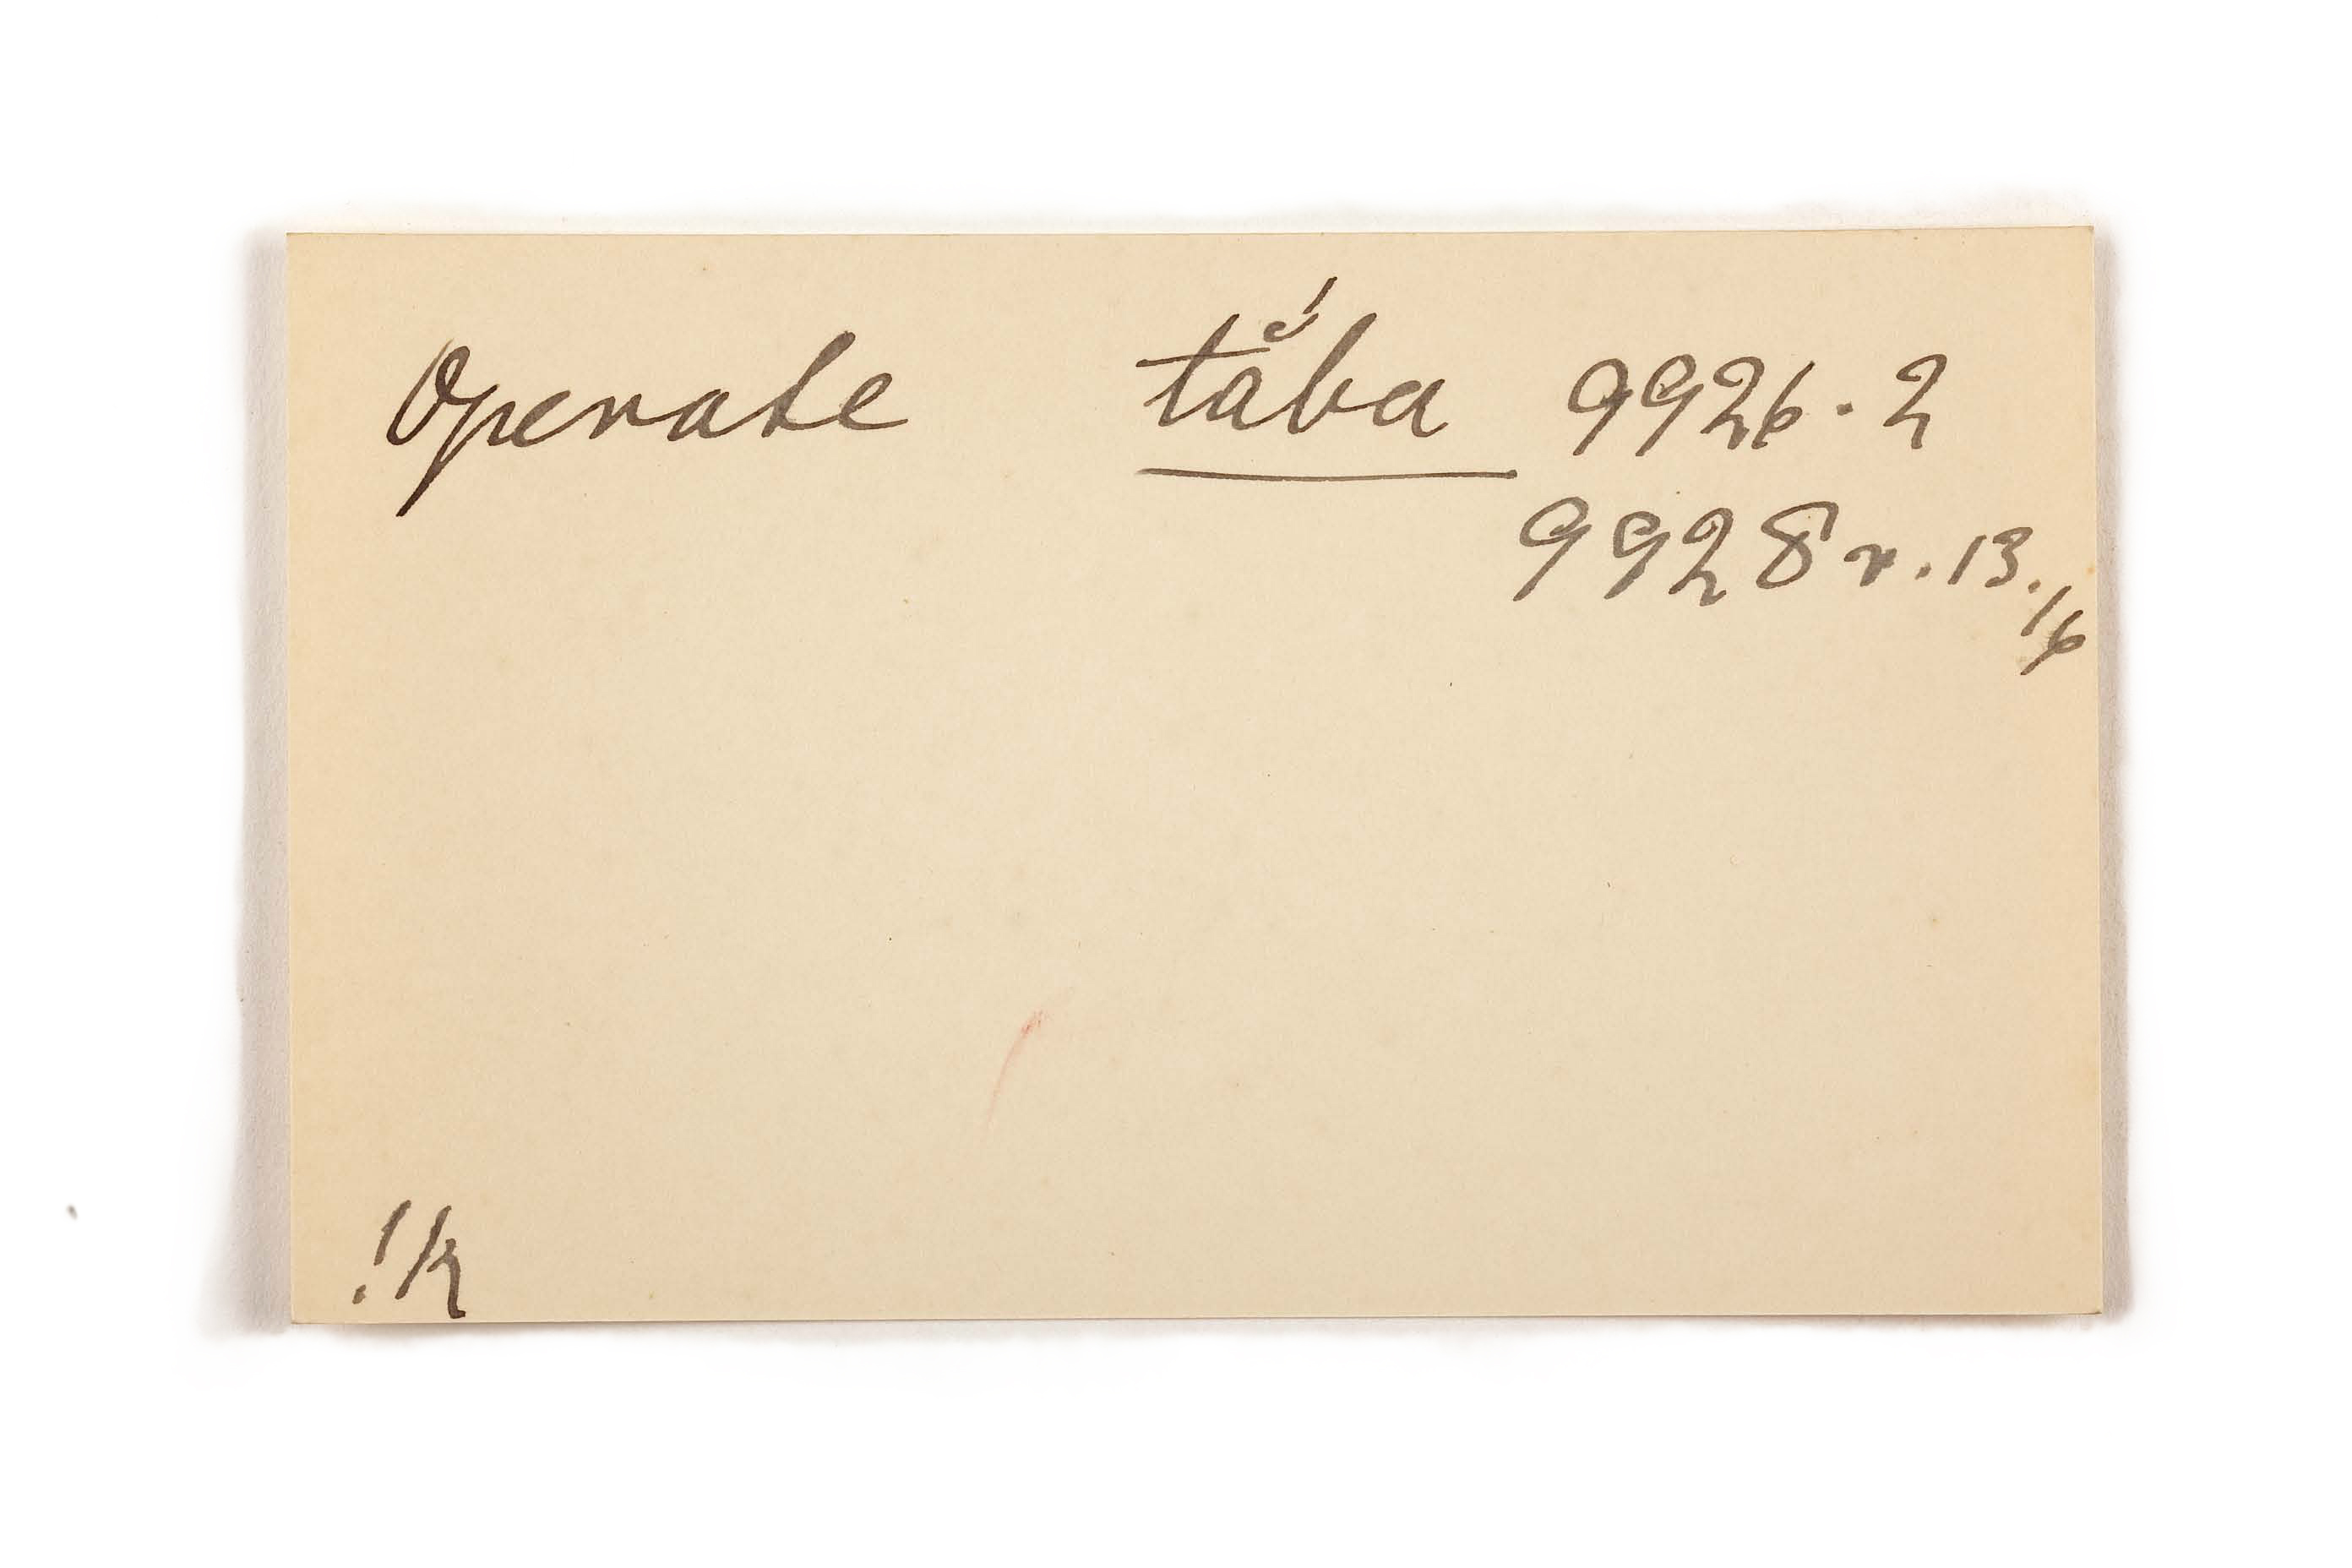 Operate tắba 9926.2
9928 r. 13.
16
!k